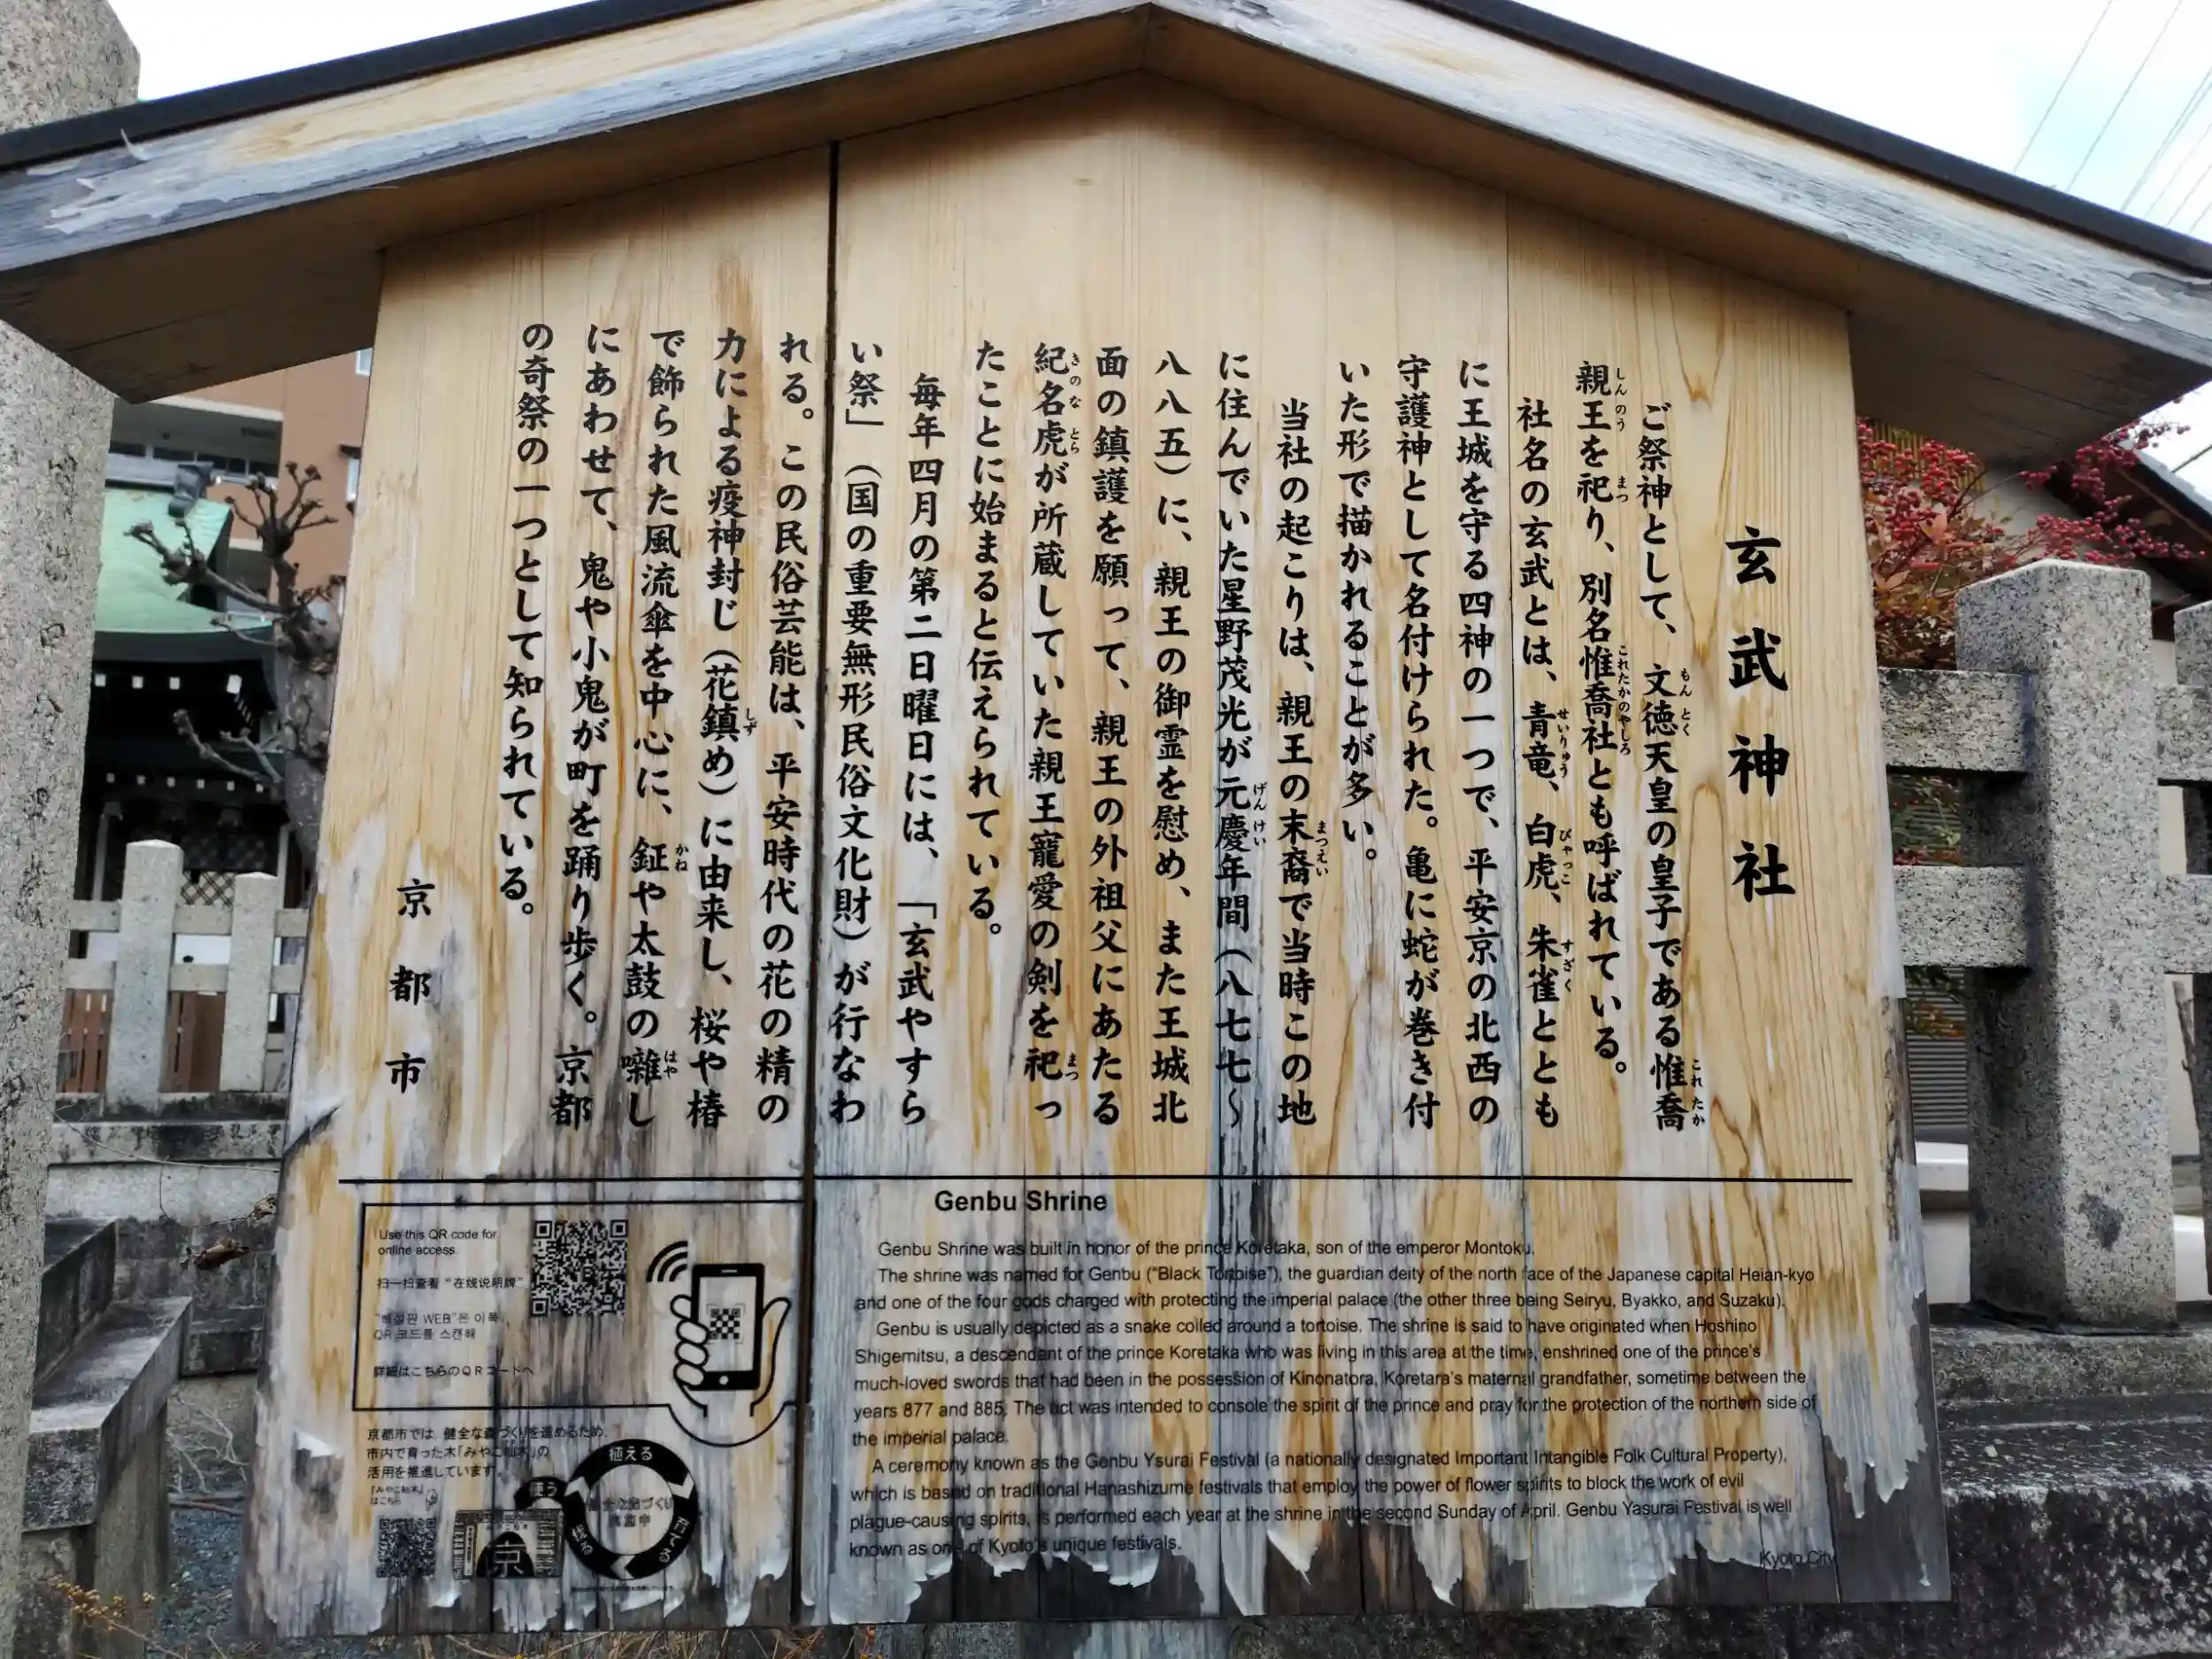 玄武神社
ご祭神として、文徳天皇の皇子である惟喬
親王を祀り、別名惟喬社とも呼ばれている。
社名の玄武とは、青竜、白虎、朱雀ととも
に王城を守る四神の一つで、平安京の北西の
守護神として名付けられた。亀に蛇が巻き付
いた形で描かれることが多い。
当社の起こりは、親王の末裔で当時この地
に住んでいた星野茂光が元慶年間(八七七~
八八五)に、親王の御霊を慰め、また王城北
面の鎮護を願って、親王の外祖父にあたる
紀名虎が所蔵していた親王寵愛の剣を祀っ
たことに始まると伝えられている。
毎年四月の第二日曜日には、「玄武やすら
い祭」(国の重要無形民俗文化財)が行なわ
れる。この民俗芸能は、平安時代の花の精の
力による疫神封じ(花鎮め)に由来し、桜や椿
で飾られた風流傘を中心に、鉦や太鼓の囃し
にあわせて、鬼や小鬼が町を踊り歩く。京都
の奇祭の一つとして知られている。
京都市
Genbu Shrine
Genbu Shrine was built in honor of the prince Koretaka, son of the emperor Montoku.
The shrine was named for Genbu ("Black Tortoise"), the guardian deity of the north face of the Japanese capital Heian-kyo
and one of the four gods charged with protecting the imperial palace (the other three being Seiryu, Byakko, and Suzaku).
Genbu is usually depicted as a snake coiled around a tortoise. The shrine is said to have originated when Hoshino
Shigemitsu, a descendant of the prince Koretaka who was living in this area at the time, enshrined one of the prince's
much-loved swords that had been in the possession of Kinonatora, Koretara's maternal grandfather, sometime between the
years 877 and 885. The act was intended to console the spirit of the prince and pray for the protection of the northern side of
the imperial palace.
A ceremony known as the Genbu Ysurai Festival (a nationally designated Important Intangible Folk Cultural Property),
which is based on traditional Hanashizume festivals that employ the power of flower spirits to block the work of evil
plague-causing spirits, is performed each year at the shrine in the second Sunday of April. Genbu Yasurai Festival is well
known as one of Kyoto's unique festivals.
Kyoto City
Use this QR code for
online access.
扫一扫查看"在线说明牌"
"해설판 WEB"은 이쪽
QR 코드를 스캔해
詳細はこちらのQRコードへ
京都市では、健全な森づくりを進めるため、
市内で育った木「みやこ杣木」の
活用を推進しています。
「みやこ杣木」
はこちら
植える
育てる
伐る
使う
京